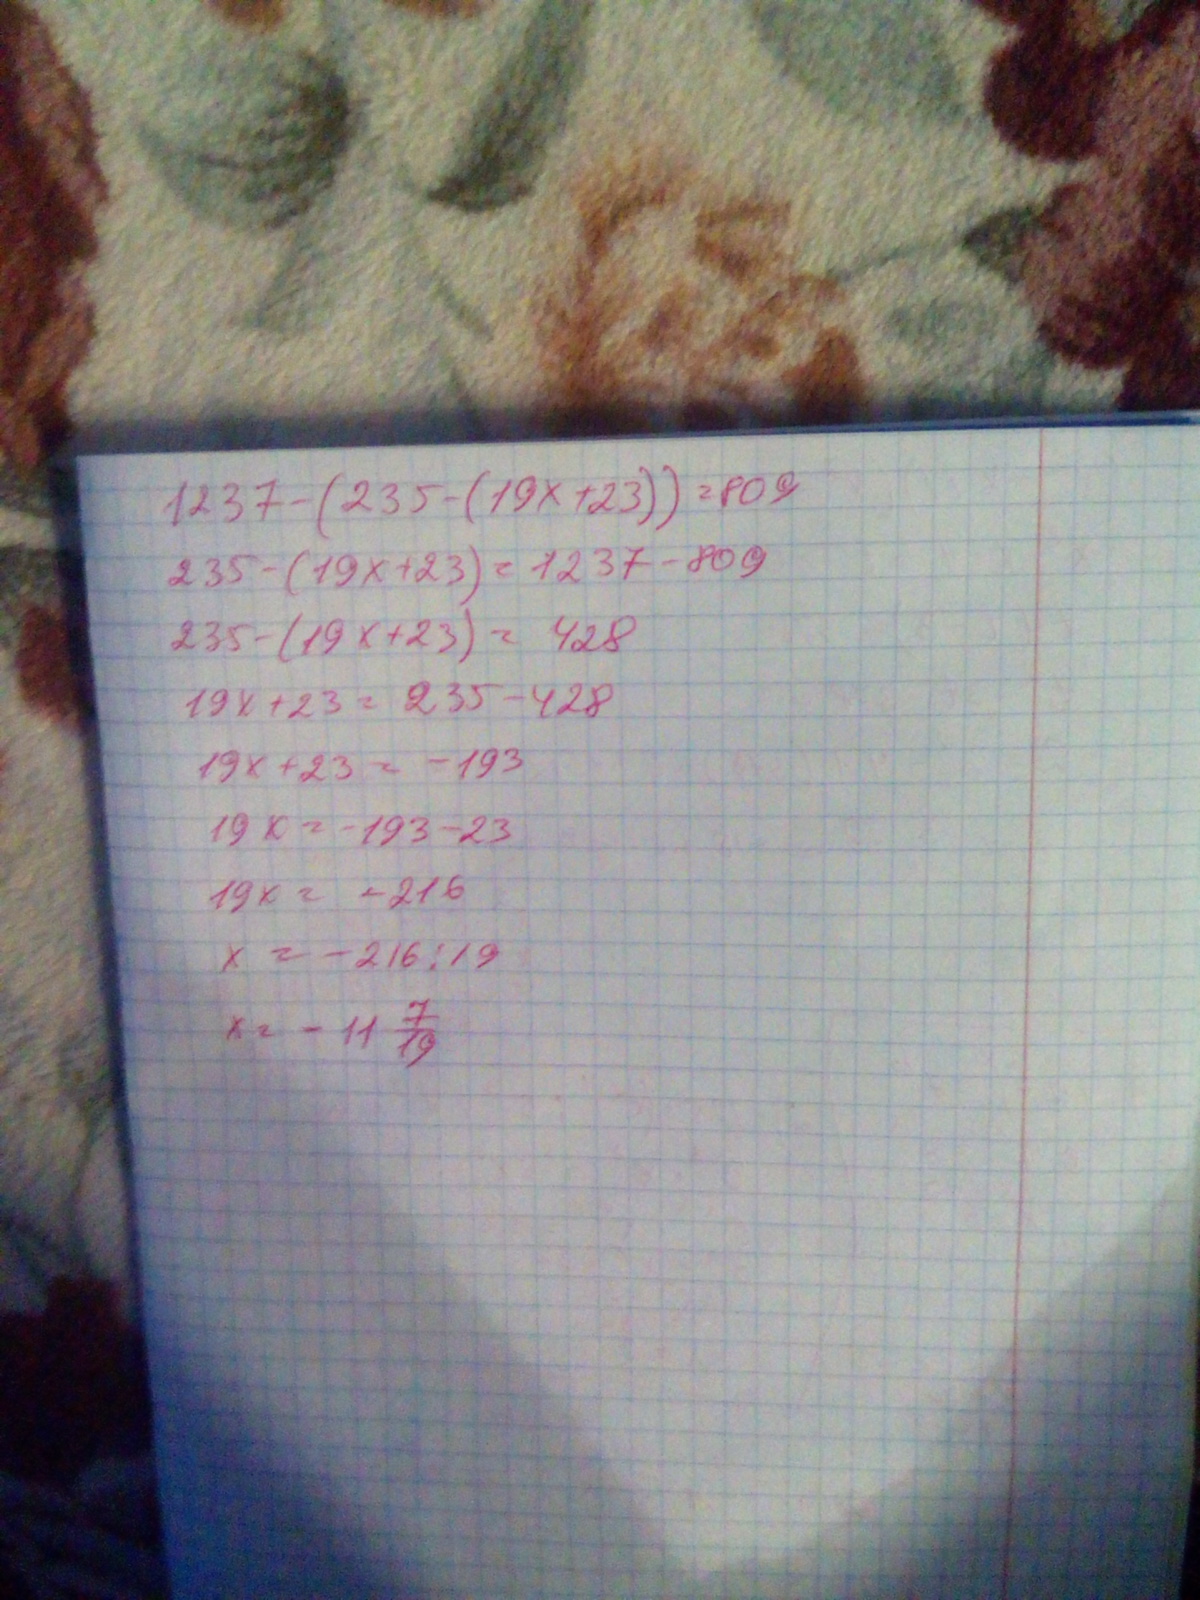 1237-(235-(19x+23))=809
235-(19x+23)=1237-809
235-(19x+23)= 428
19x+23= 235-428
19x+23= -193
19x=-193-23
19x= -216
x = -216:19
x= -11 7/19